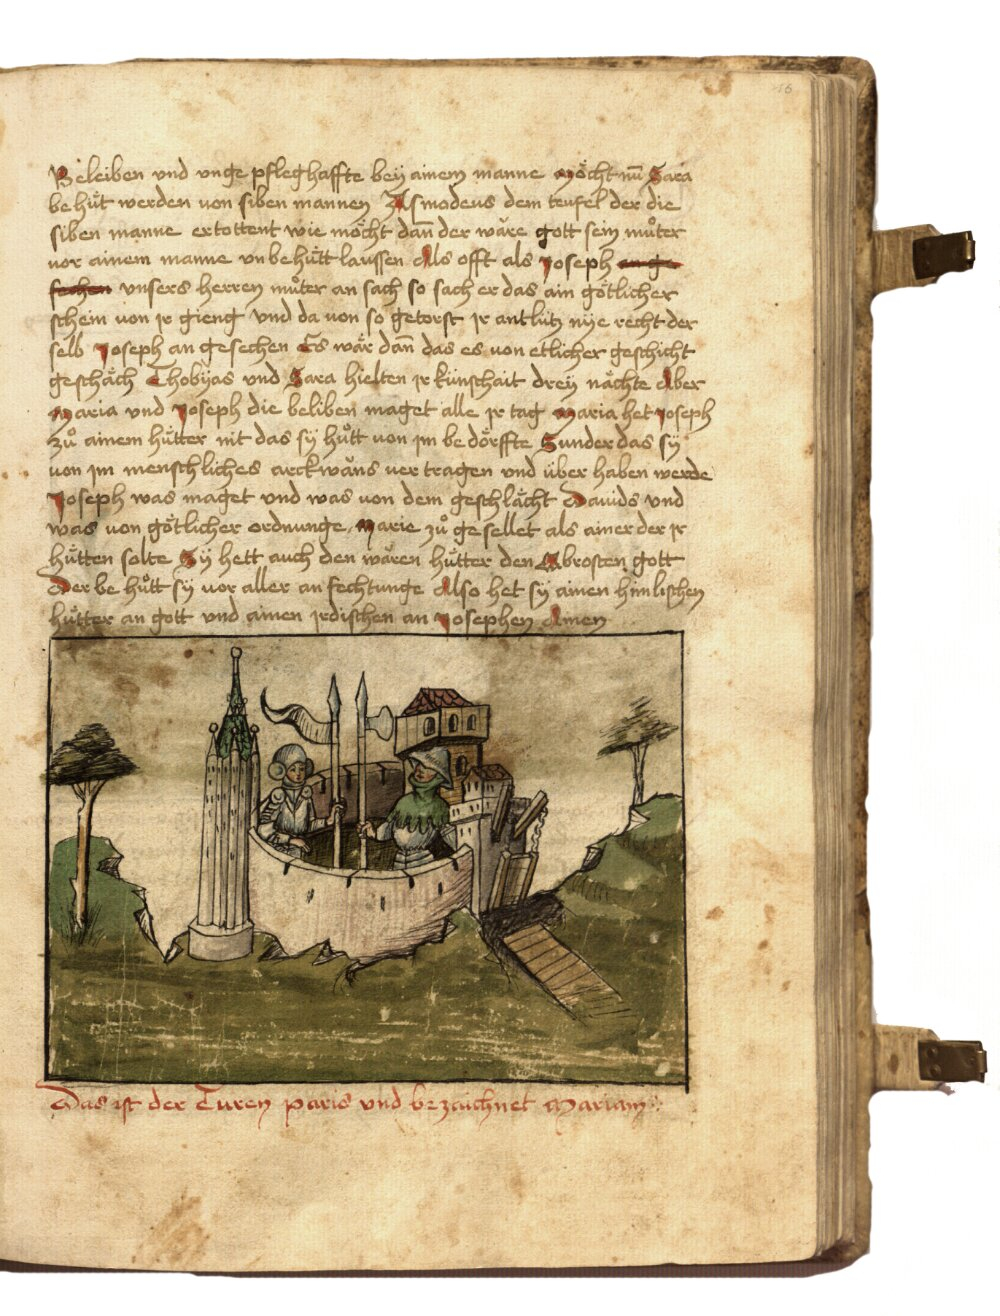 16
Beleiben vnd vnge pfleghaffte beÿ ainem manne Möcht nū Sara
be hüt werden von siben mannen Asmodeus dem teufel der die
siben manne ertottent wie möcht dañ der wäre gott sein můter
vor ainem manne vnbehütt laussen Als offt als Joseph an ge
sechen vnsers herren můter an sach so sach er das ain götlicher
schein von jr gieng Vnd da von so getorst jr antlütz nÿe recht der
selb Joseph an gesechen Es wär dañ das es von etlicher geschicht
geschäch Thobÿas vnd Sara hielten jr künschait dreÿ nächte Aber
Maria vnd Joseph die beliben maget alle jr tag Maria het Joseph
zů ainem hütter nit das sÿ hütt von jm bedörffte Sunder das sÿ
von jm menschliches arckwäns ver tragen vnd über haben werde
Joseph was maget vnd was von dem geschlächt Dauids vnd
was von götlicher ordnunge Marie zů gesellet als ainer der jr
hütten solte Sÿ hett auch den wären hütter den Abrosten gott
Der be hütt sÿ vor aller an fechtunge Also het sÿ ainen himlischen
hütter an gott vnd ainen jrdischen an Josephen Amen
Das ist der Turen paris vnd bezaichnet Mariam